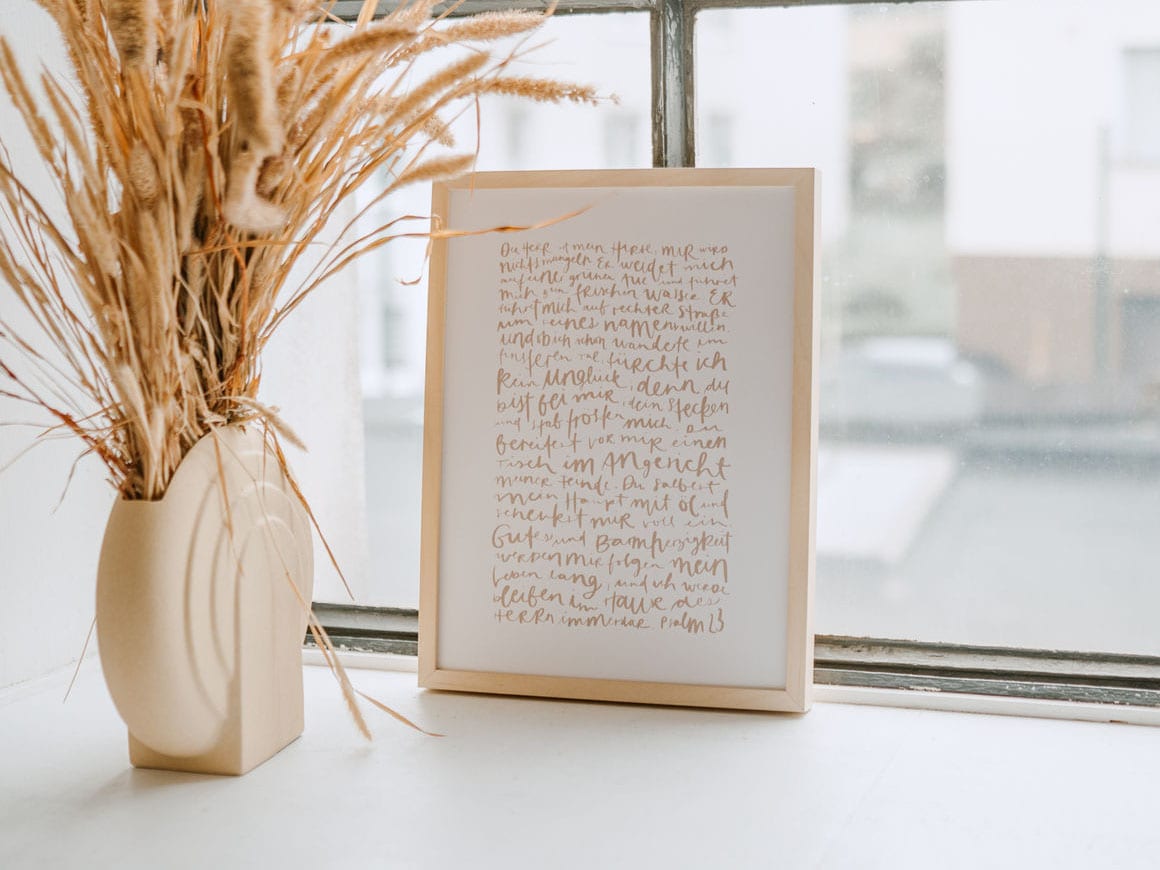 Der HERR ist mein Hirte, mir wird
nichts mangeln. Er weidet mich
auf einer grünen Aue und führet
mich zum frischen Wasser. Er
führt mich auf rechter Straße
um seines namens willen.
und ob ich schon wanderte im
finsteren Tal, fürchte ich
kein unglück, denn du
bist bei mir, dein Stecken
und Stab trösten mich. Du
bereitest vor mir einen
Tisch im Angesicht
meiner Feinde. Du salbest
mein Haupt mit Öl und
schenkest mir voll ein
Gutes und Barmherzigkeit
werden mir folgen mein
Leben lang, und ich werde
bleiben im Hause des
HERRN immerdar. Psalm 23